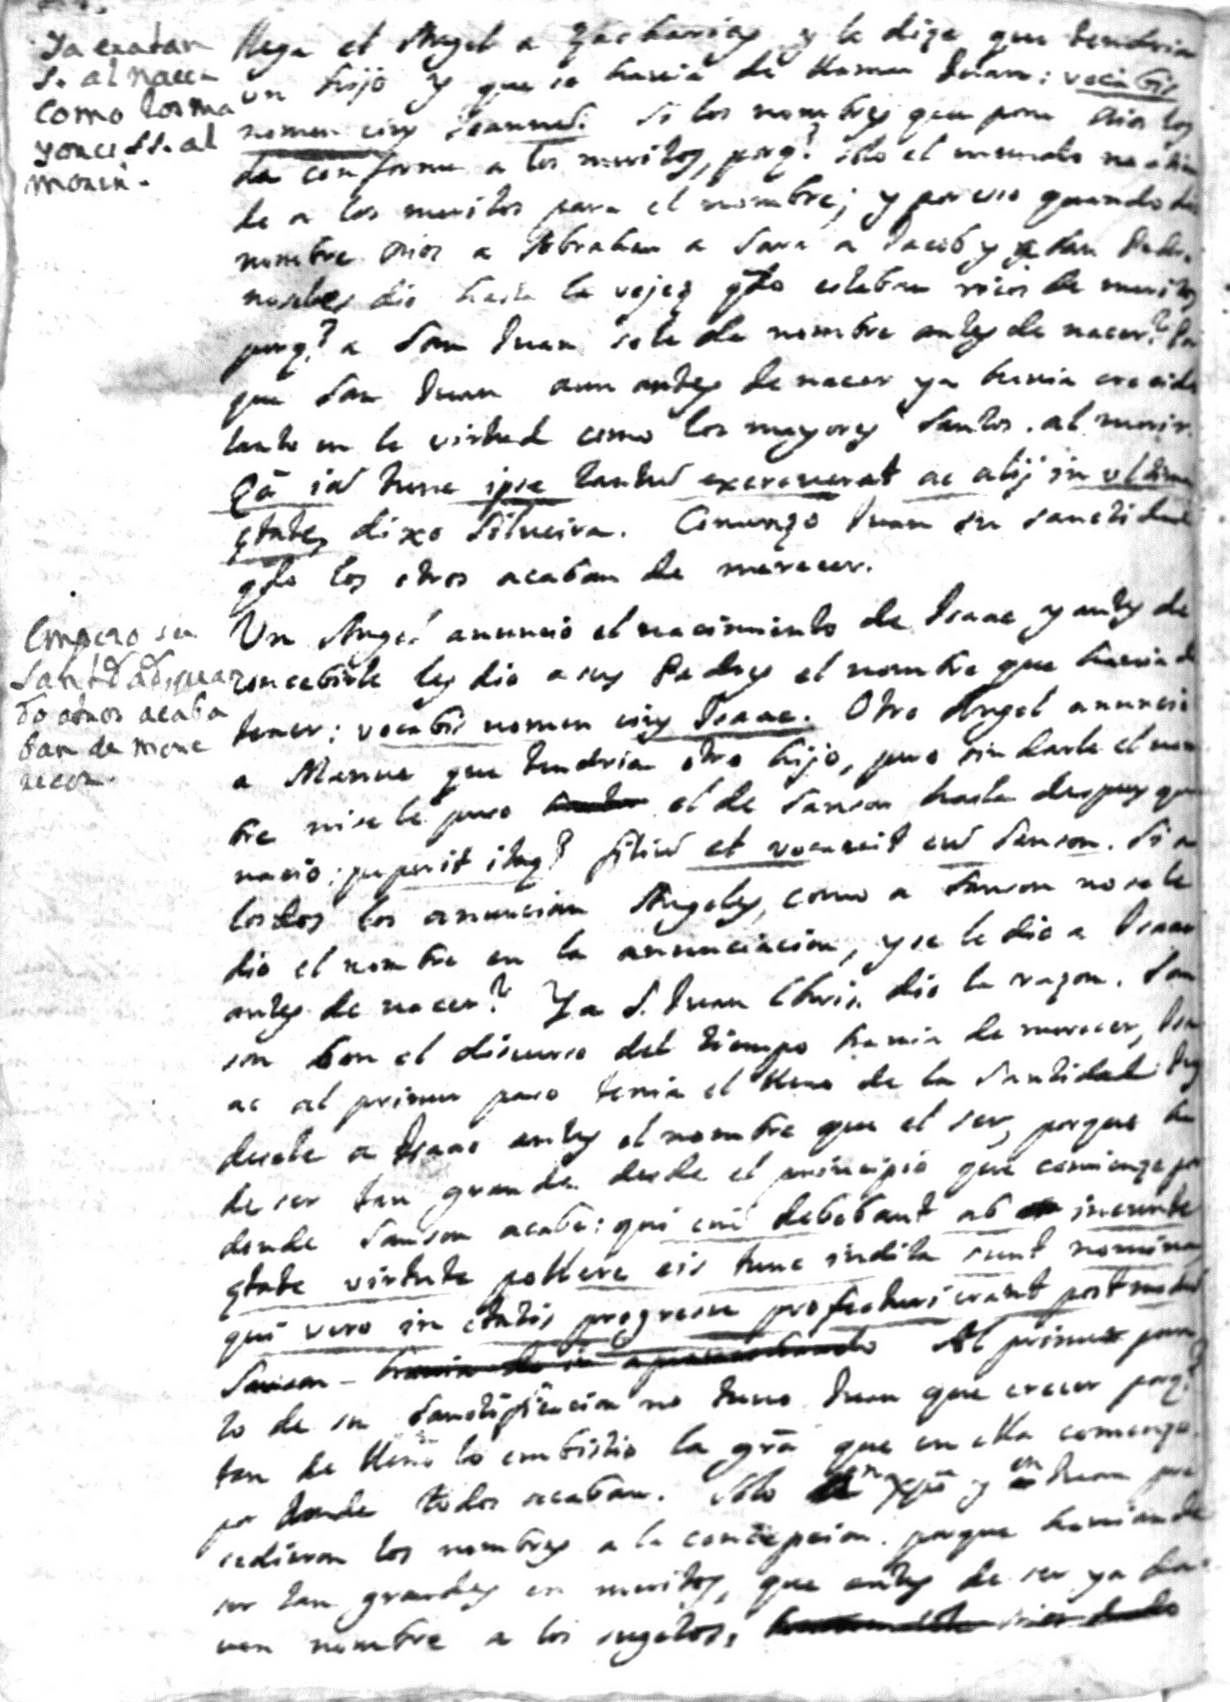 Ya era tan
S. al nacer
como los ma
yores SS. al
morir.
llega el Angel a Zacharias y le dize que tendria
un hijo y que se havia de llamar Juan: vocabis
nomen eius Joannes. Si los nombres que pone Dios los
da conforme a los meritos, porq.e solo el mundo no atien
de a los meritos para el nombre; y por eso quando da
nombre Dios a Abrahan a Sara a Jacob y a San Pedro
no se les dio hasta la vejez qdo estaban ricos de meritos
porq.e a San Juan se le da nombre antes de nacer? Por
que San Juan aun antes de nacer ya havia crecido
tanto en la virtud como los mayores Santos al morir.
Qã iã tunc ipse tantũ excreverat ac alij in ultima
ętate, dixo Silveira. Comenzó Juan su sanctidad
qdo los otros acaban de merecer.
Empezo su
Santd. a
do otros acaba
ban de mere
recer.
Un Angel anunció el nacimiento de Isaac y antes de
concebirle les dio a sus Padres el nombre que havia de
tener: vocabis nomen eius Isaac. Otro Angel anunció
a Manue que tendria otro hijo, pero sin darle el nom
bre ni se le puso el de Sanson hasta despues que
nacio: peperit itaq.e filiũ et vocavit eũ Sanson. Si a
los dos los anuncian Angeles, como a Sanson no se le
dio el nombre en la anunciacion, y se le dio a Isaac
antes de nacer? Ya S. Juan Chris. dio la razon. San
son con el discurso del tiempo havia de merecer, Isa
ac al primer paso tenia el lleno de la Santidad
desele a Isaac antes el nombre que el ser, porque ha
de ser tan grande desde el principio que comienze por
donde Sanson acaba: qui enĩ debebant ab ineunte
ętate virtute pollere eis tunc indita sunt nomina
qui vero in etatis progressu profecturi erant postmodũ
Sanson - Al primer pun
to de su Santificacion no tuvo Juan que crecer porq.e
tan de lleno lo embistio la grã que en ella comenzo
por donde todos acaban. Solo en Xpõ y en Juan
se dieron los nombres a la concepcion porque havian de
ser tan grandes en meritos, que antes de ser ya da
van nombre a los sugetos,